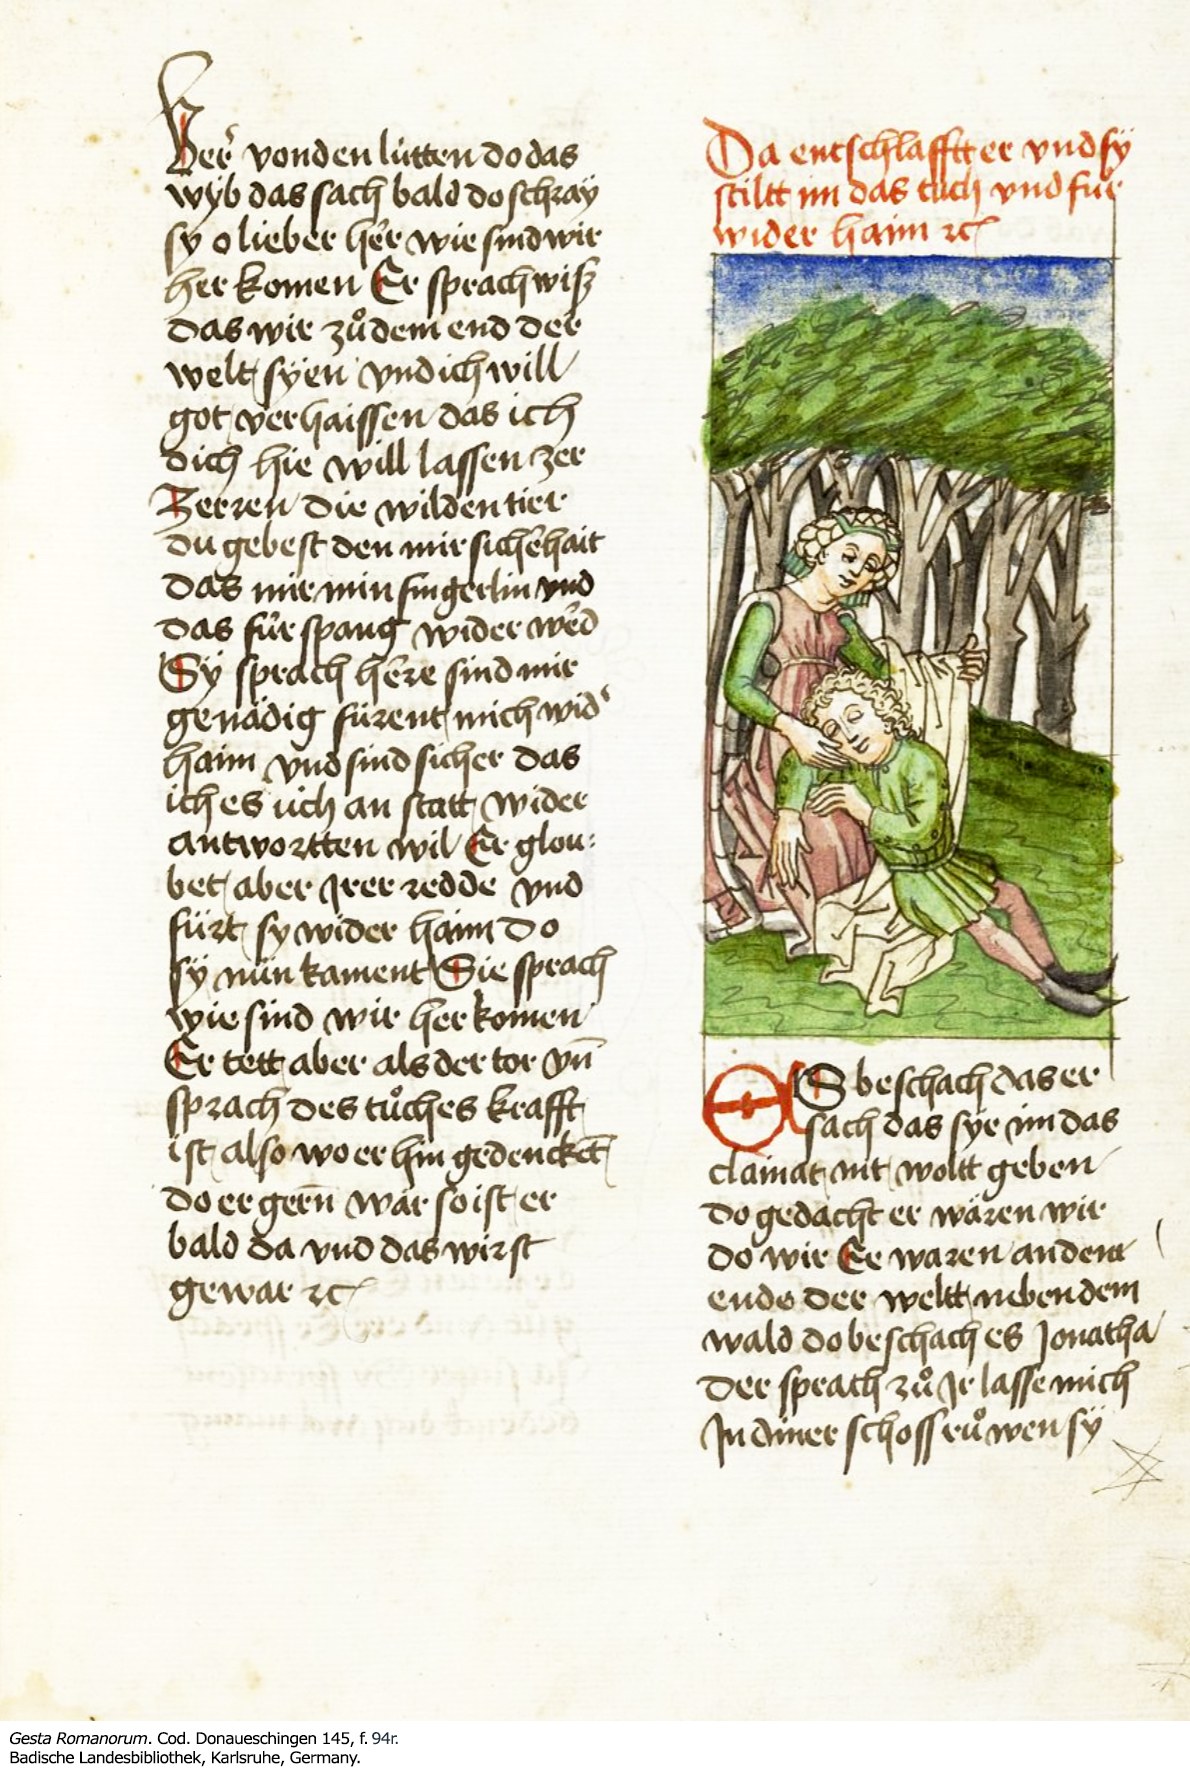 herr von den lütten do das
wyb das sach bald do schraÿ
sy o lieber herr wie sind wir
her komen Er sprach wiß
das wir zů dem end der
welt syen vnd ich will
got verhaissen das ich
dich hie will lassen zer
Zerren die wilden tier
du gebest den mir sicherhait
das mir min fingerlin vnd
das fürspang wider werd
Sÿ sprach herre sind mir
genädig fürent mich wider
haim vnd sind sicher das
ich es üch an statt wider
antwortten wil Er glou-
bet aber Irer redde vnd
fürt sy wider haim Do
sÿ nün kament Sie sprach
wie sind wir her komen
Er tett aber als der tor vn̄
sprach des tůches krafft
ist also wo er hin gedencket
do er gern̄ wär so ist er
bald da vnd das wirst
gewar ꝛc
Da entschlafftt er vnd sÿ
stiltt im das tůch vnd fůr
wider haim ꝛc
ES beschach das er
sach das sÿe im das
clainat nit woltt geben
do gedacht er wären wir
do wir Ee waren an dem
ende der weltt neben dem
wald do beschach es Jonatha
der sprach zů Ir lasse mich
In diner schoss růwen sÿ
Gesta Romanorum. Cod. Donaueschingen 145, f. 94r.
Badische Landesbibliothek, Karlsruhe, Germany.